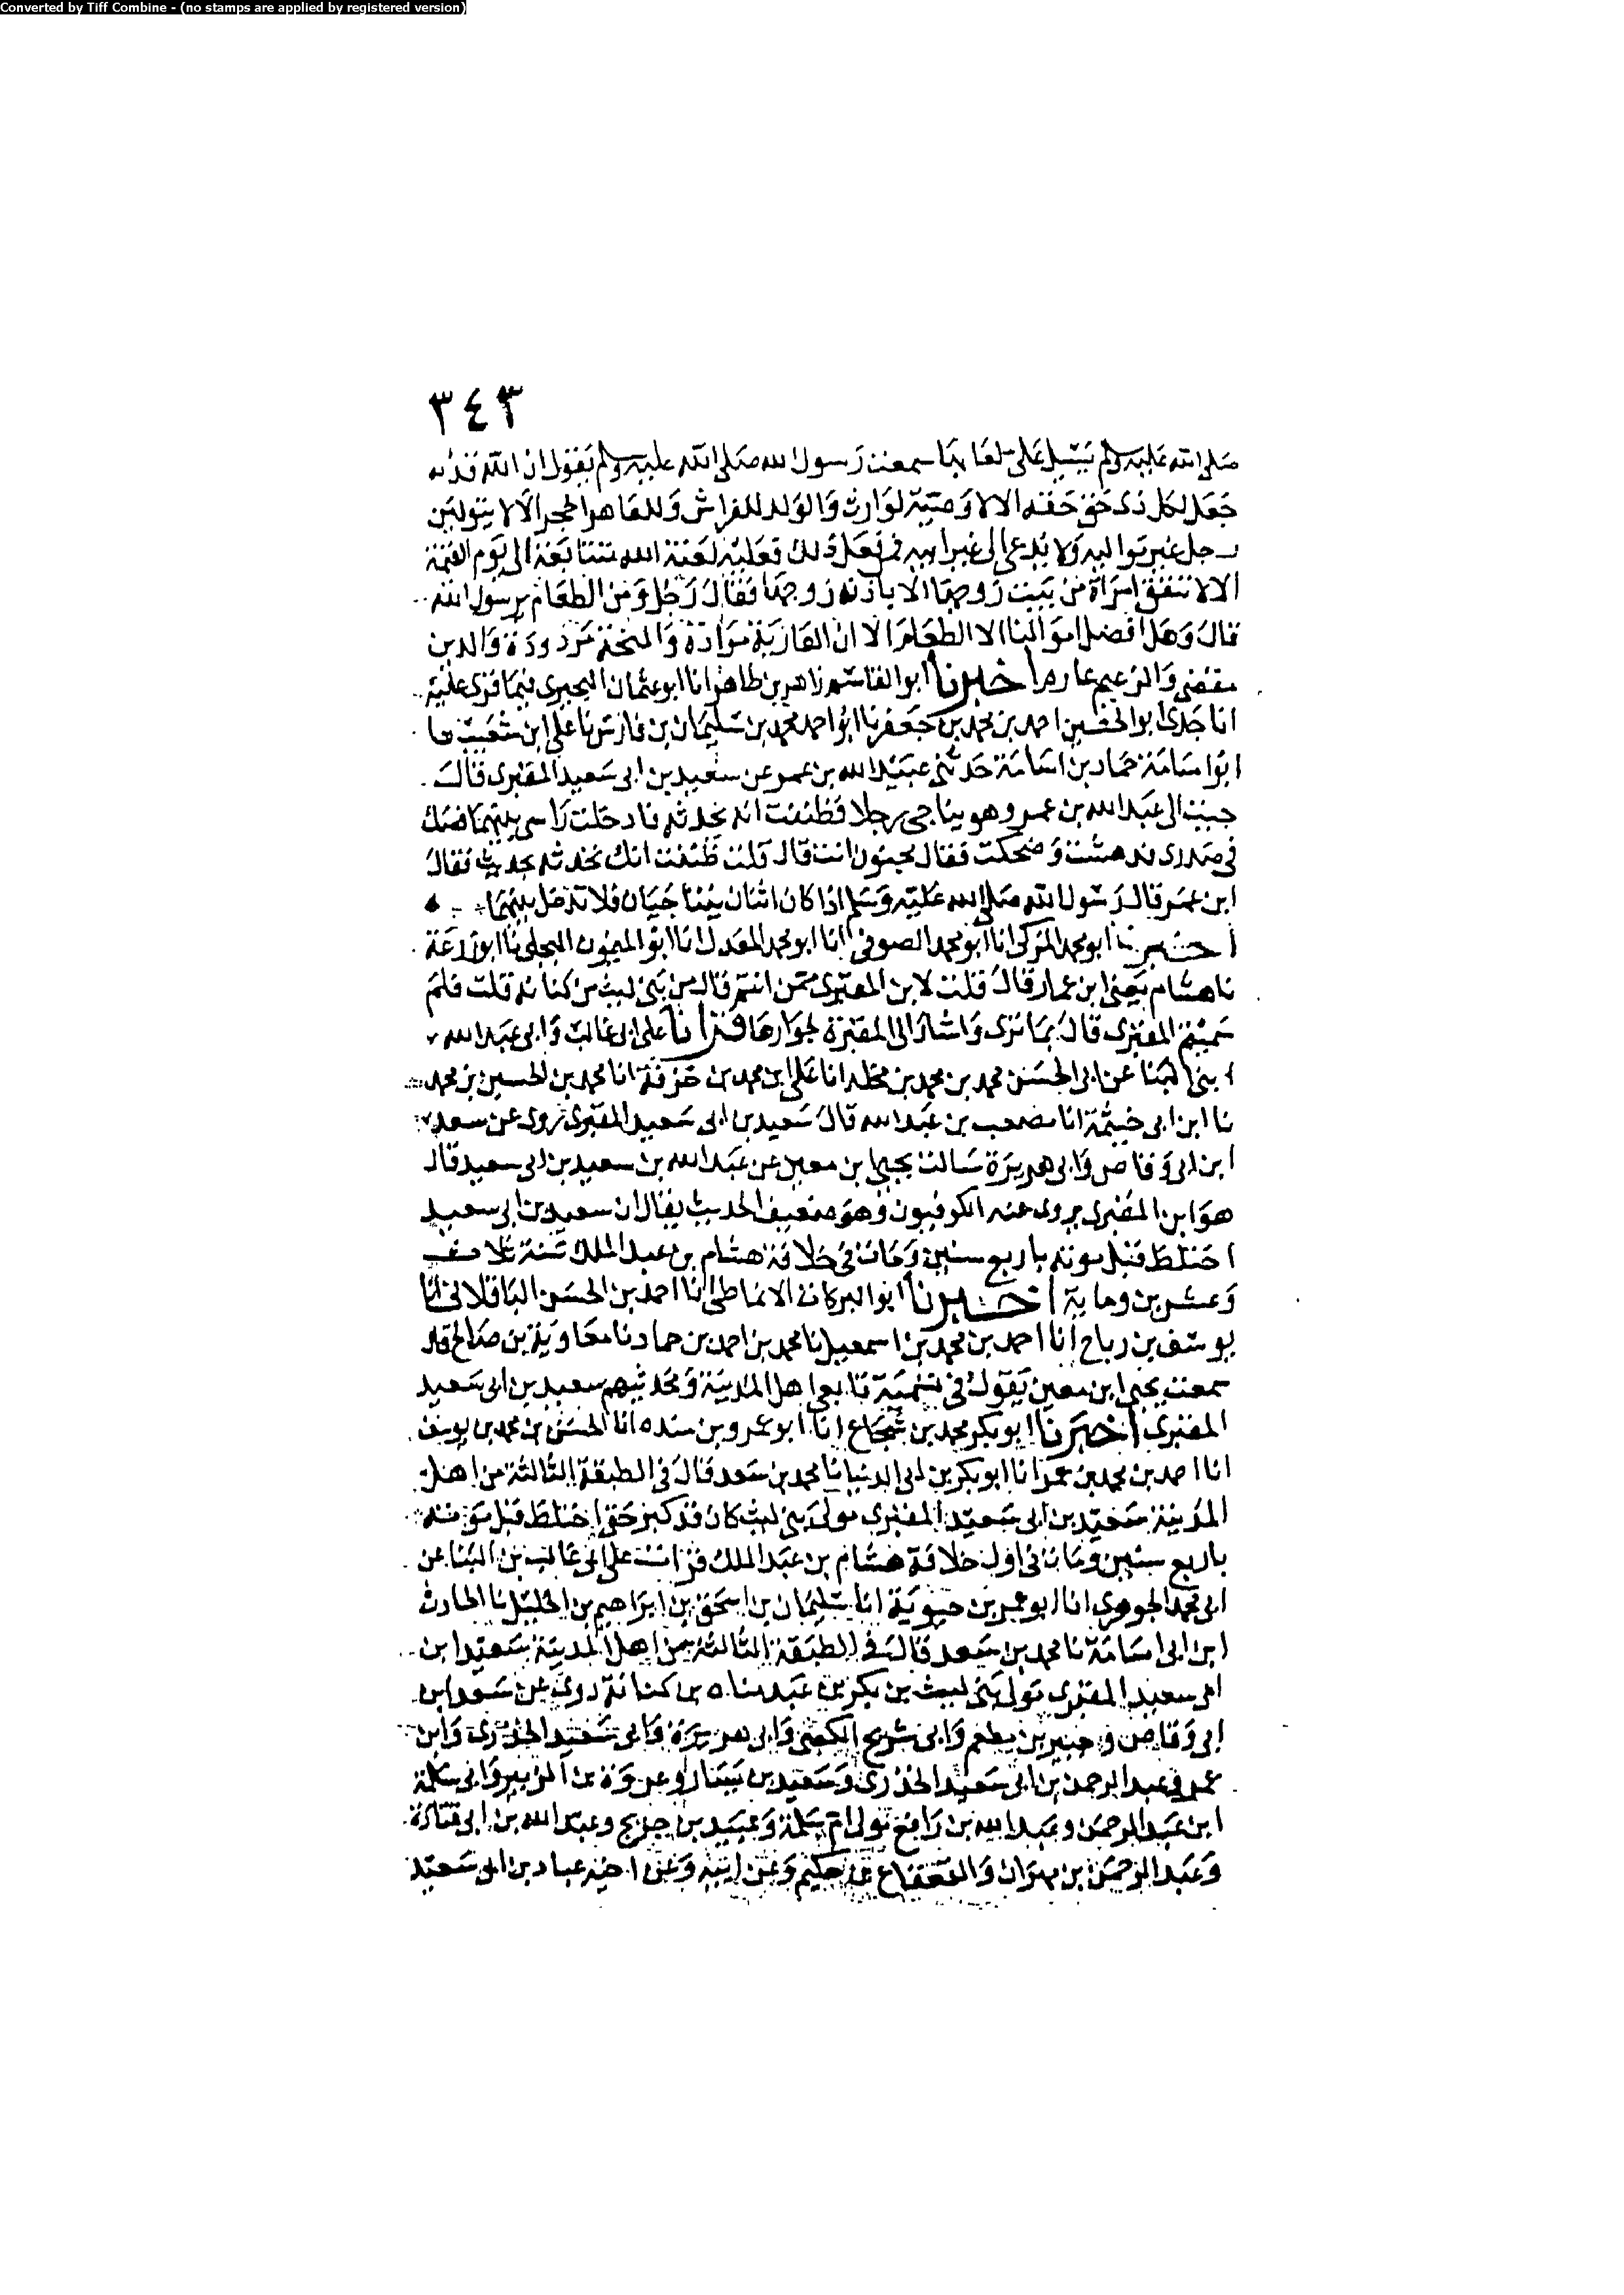 Converted by Tiff Combine - (no stamps are applied by registered version)
٣٤٣
صلى الله عليه وسلم يسيل على لعابها سمعت رسول الله صلى الله عليه وسلم يقول ان الله قد
جعل لكل ذى حق حقه الا لا وصية لوارث والولد للفراش وللعاهر الحجر الا لا يتولين
رجل غير مواليه ولا يدعى الى غير ابيه فمن فعل ذلك فعليه لعنة الله متتابعة الى يوم القيمة
الا لا تنفق امراة من بيت زوجها الا باذن زوجها فقال رجل ومن الطعام يرسول الله
قال وهل افضل اموالنا الا الطعام الا ان العارية مواداة والمنحة مردودة والدين
مقضى والزعيم غارم اخبرنا ابو القاسم زاهر بن طاهر انا ابو عثمان البحيرى فيما قرى عليه
انا جدى ابو الحسين احمد بن محمد بن جعفر نا ابو احمد محمد بن سليمان بن فارس نا على ابن شعيب نا
ابو اسامة حماد بن اسامة حدثنى عبيد الله بن عمر عن سعيد بن ابى سعيد المقبرى قال
جيت الى عبد الله بن عمر وهو يناجى رجلا فظننت انه يحدثه فادخلت راسى بينهما فضك
فى صدرى فدهشت وضحكت فقال مجنون انت قال قلت ظننت انك تحدثه بحديث فقال
ابن عمر قال رسول الله صلى الله عليه وسلم اذا كان اثنان يتناجيان فلا تدخل بينهما
اخبرنا ابو محمد المزكى انا ابو محمد الصوفى انا ابو محمد المعدل انا ابو الميمون البجلى نا ابو زرعة
نا هشام يعنى ابن عمار قال قلت لابن المقبرى ممن انتم قال من بنى ليث من كنانه قلت فلم
سميتم المقبرى قال بما ترى واشار الى المقبرة لجوارها قرانا على ابى غالب وابى عبد الله
ابنى البنا عن ابى الحسن محمد بن محمد بن مخلد انا على ابن محمد بن خزفة انا محمد بن الحسين بن محمد
نا ابن ابى خيثمة انا مصعب بن عبد الله قال سعيد بن ابى سعيد المقبرى روى عن سعد
ابن ابى وقاص وابى هريرة سالت يحيى ابن معين عن عبد الله بن سعيد بن ابى سعيد قال
هو ابن المقبرى يروى عنه الكوفيون وهو ضعيف الحديث يقال ان سعيد بن ابى سعيد
اختلط قبل موته باربع سنين ومات فى خلافة هشام بن عبد الملك سنة ثلاث
وعشرين وماية اخبرنا ابو البركات الانماطى انا احمد بن الحسن الباقلانى انا
يوسف بن رباح انا احمد بن محمد بن اسمعيل نا محمد بن احمد بن حماد نا معاوية بن صالح قال
سمعت يحيى ابن معين يقول فى تسمية تابعى اهل المدينة ومحدثيهم سعيد بن ابى سعيد
المقبرى اخبرنا ابو بكر محمد بن شجاع انا ابو عمرو بن منده انا الحسن بن محمد بن يوسف
انا احمد بن محمد بن عمر انا ابو بكر بن ابى الدنيا نا محمد بن سعد قال فى الطبقة الثالثة من اهل
المدينة سعيد بن ابى سعيد المقبرى مولى بنى ليث كان قد كبر حتى اختلط قبل موته
باربع سنين ومات فى اول خلافة هشام بن عبد الملك قرات على ابى غالب بن البنا عن
ابى محمد الجوهرى انا ابو عمر بن حيوية انا سليمان بن اسحق بن ابراهيم بن الخليل نا الحارث
ابن ابى اسامة نا محمد بن سعد قال فى الطبقة الثالثة من اهل المدينة سعيد ابن
ابى سعيد المقبرى مولى بنى ليث بن بكر بن عبد مناه بن كنانة روى عن سعد ابن
ابى وقاص وجبير بن مطعم وابى شريح الكعبى وابى هريرة وابى سعيد الخدرى وابن
عمر وعبد الرحمن بن ابى سعيد الخدرى وسعيد بن يسار وعروة بن الزبير وابى سلمة
ابن عبد الرحمن وعبد الله بن رافع مولى ام سلمة وعبيد بن جريج وعبد الله بن ابى قتادة
وعبد الرحمن بن مهران والقعقاع بن حكيم وعن ابيه وعن اخيه عباد بن ابى سعيد